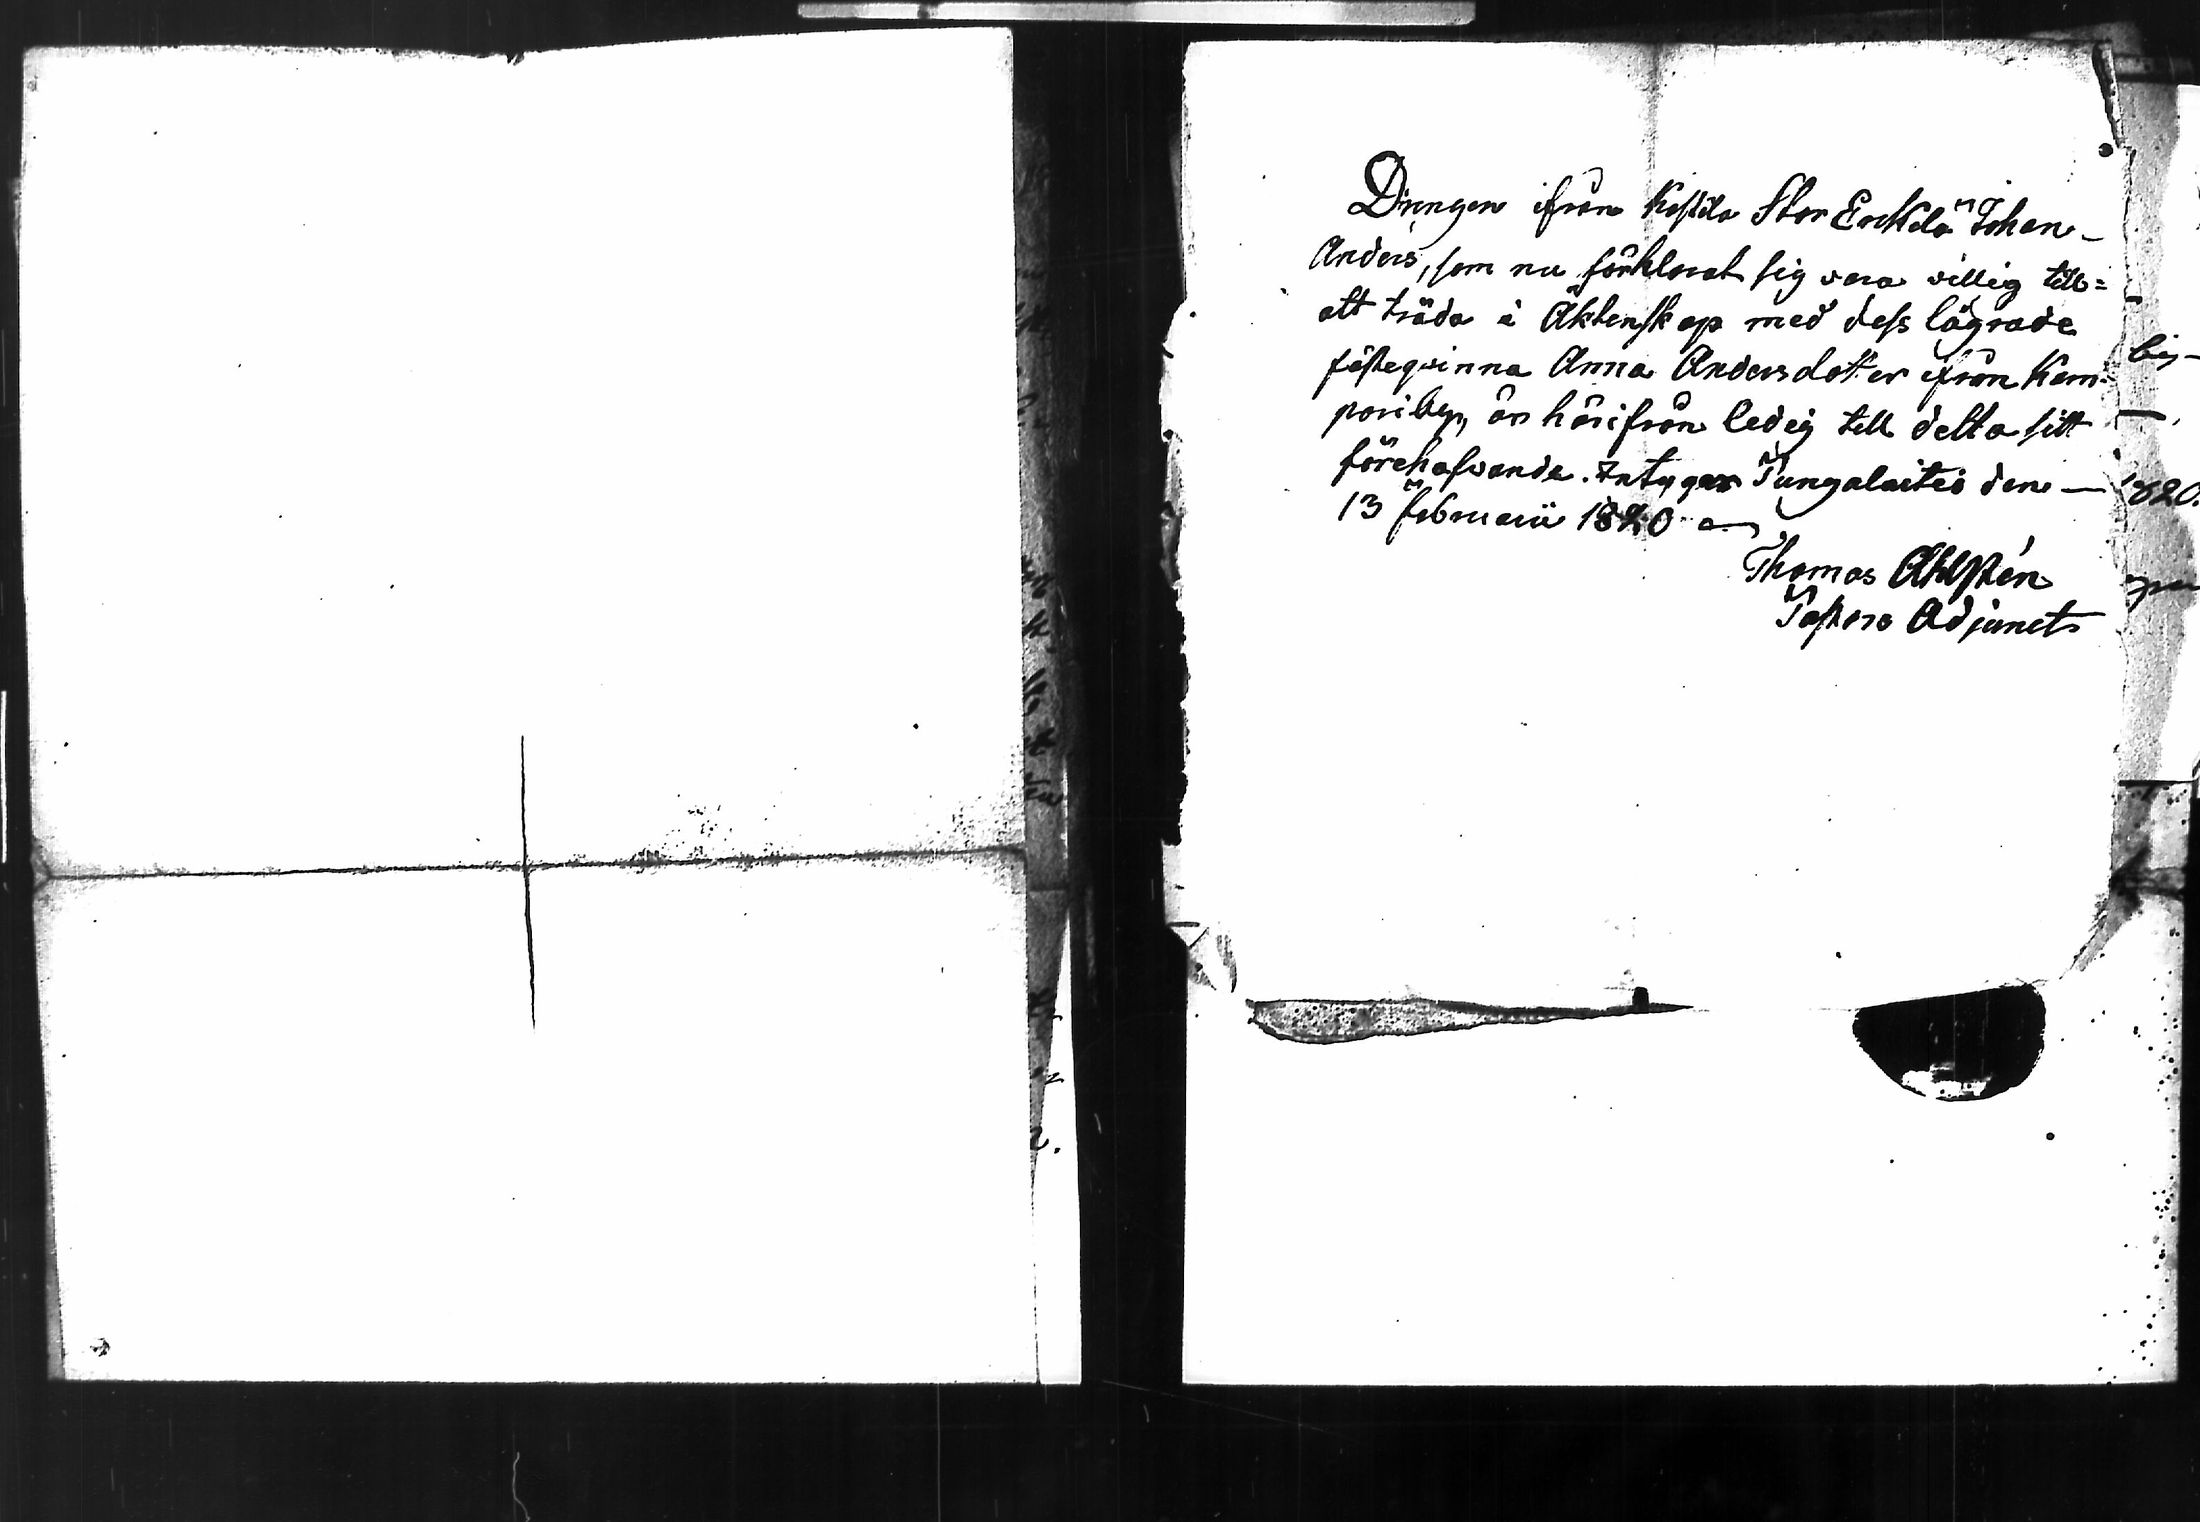 Drengen ifrån Kestila Stor Erkkilä Johan
Anders, som nu förklarat sig vara villig till=
att träda i Äktenskap med dess lägrade
fästeqvinna Anna Andersdotter ifrån Kem-
pariby, är härifrån ledig till detta sitt
förehafvande. Intygar Pungalaitio den —
13 februarii 1820
Thomas Ahlstén
Pastors Adjunct
820.